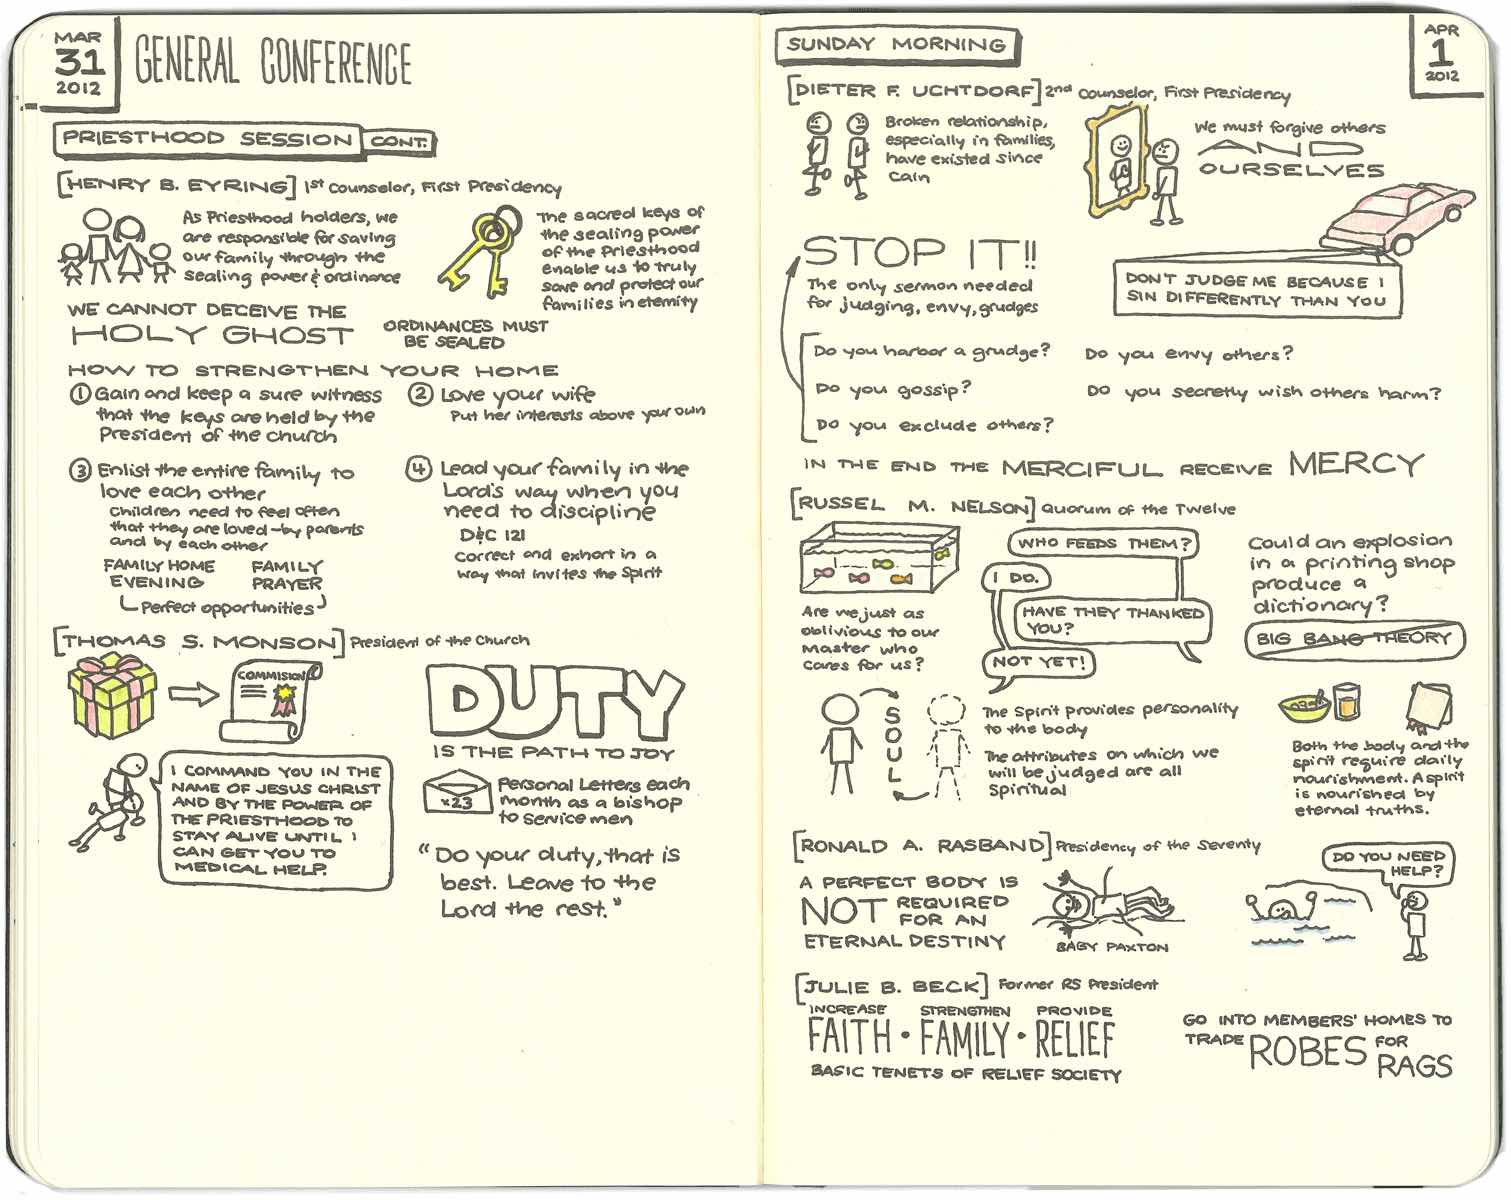 MAR
31
2012
GENERAL CONFERENCE
PRIESTHOOD SESSION CONT.
[HENRY B. EYRING] 1st Counselor, First Presidency
As Priesthood holders, we
are responsible for saving
our family through the
sealing power & ordinance
The sacred keys of
the sealing power
of the Priesthood
enable us to truly
save and protect our
families in eternity
WE CANNOT DECEIVE THE
HOLY GHOST
ORDINANCES MUST
BE SEALED
HOW TO STRENGTHEN YOUR HOME
① Gain and keep a sure witness
that the keys are held by the
President of the church
② Love your wife
Put her interests above your own
③ Enlist the entire family to
love each other
Children need to feel often
that they are loved - by parents
and by each other
FAMILY HOME
EVENING
FAMILY
PRAYER
Perfect opportunities
④ Lead your family in the
Lord's way when you
need to discipline
D&C 121
Correct and exhort in a
way that invites the Spirit
[THOMAS S. MONSON] President of the Church
COMMISION
DUTY
IS THE PATH TO JOY
I COMMAND YOU IN THE
NAME OF JESUS CHRIST
AND BY THE POWER OF
THE PRIESTHOOD TO
STAY ALIVE UNTIL I
CAN GET YOU TO
MEDICAL HELP.
x23
Personal Letters each
month as a bishop
to service men
"Do your duty, that is
best. Leave to the
Lord the rest."
SUNDAY MORNING
APR
1
2012
[DIETER F. UCHTDORF] 2nd Counselor, First Presidency
Broken relationship,
especially in families,
have existed since
Cain
We must forgive others
AND
OURSELVES
STOP IT!!
The only sermon needed
for judging, envy, grudges
DON'T JUDGE ME BECAUSE I
SIN DIFFERENTLY THAN YOU
Do you harbor a grudge?
Do you envy others?
Do you gossip?
Do you secretly wish others harm?
Do you exclude others?
IN THE END THE MERCIFUL RECEIVE MERCY
[RUSSEL M. NELSON] Quorum of the Twelve
WHO FEEDS THEM?
I DO.
HAVE THEY THANKED
YOU?
NOT YET!
Are we just as
oblivious to our
Master who
cares for us?
Could an explosion
in a printing shop
produce a
dictionary?
BIG BANG THEORY
SOUL
The Spirit provides personality
to the body
The attributes on which we
will be judged are all
Spiritual
Both the body and the
spirit require daily
nourishment. A spirit
is nourished by
eternal truths.
[RONALD A. RASBAND] Presidency of the Seventy
A PERFECT BODY IS
NOT REQUIRED
FOR AN
ETERNAL DESTINY
BABY PAXTON
DO YOU NEED
HELP?
[JULIE B. BECK] Former RS President
INCREASE STRENGTHEN PROVIDE
FAITH • FAMILY • RELIEF
BASIC TENETS OF RELIEF SOCIETY
GO INTO MEMBERS' HOMES TO
TRADE ROBES FOR
RAGS